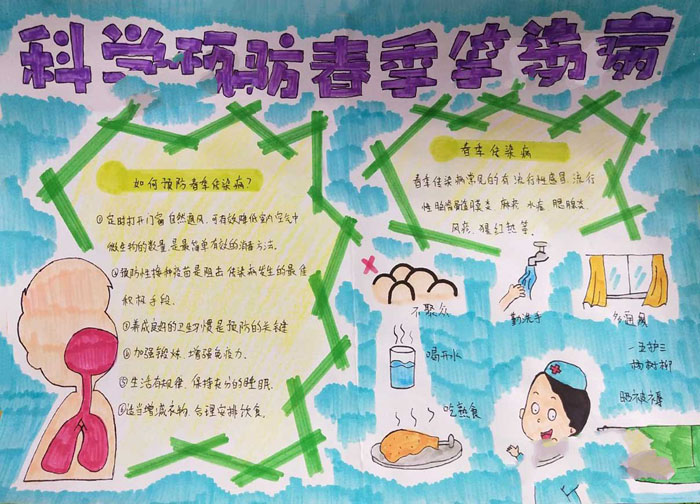 科学预防春季传染病
如何预防春季传染病?
①定时打开门窗自然通风,可有效降低室内空气中
微生物的数量,是最简单有效的消毒方法.
②预防性接种疫苗是阻击传染病发生的最佳
积极手段.
③养成良好的卫生习惯是预防的关键
④加强锻炼,增强免疫力.
⑤生活有规律,保持充分的睡眠.
⑥适当增减衣物,合理安排饮食.
春季传染病
春季传染病常见的有:流行性感冒 流行
性脑脊髓膜炎 麻疹 水痘 腮腺炎
风疹 猩红热等.
不聚众
勤洗手
多通风
喝开水
吃熟食